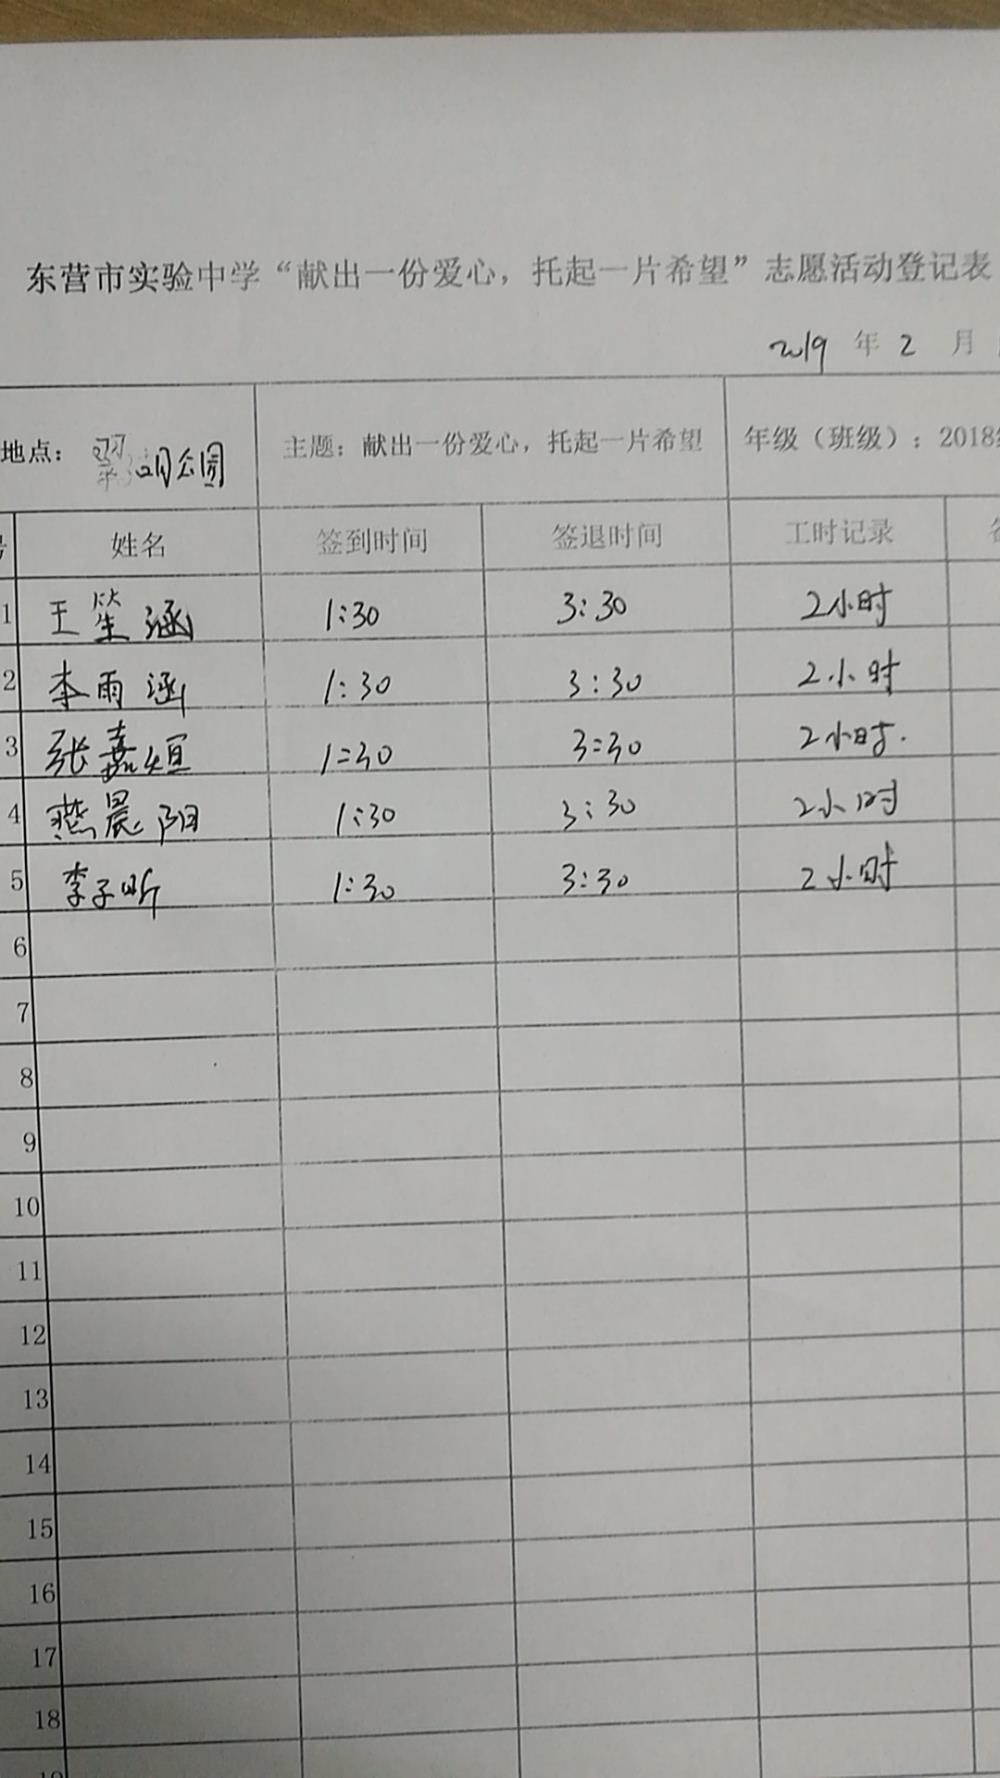 东营市实验中学“献出一份爱心，托起一片希望”志愿活动登记表
2019 年 2 月
地点： 湖公园 主题：献出一份爱心，托起一片希望 年级（班级）：2018
号 姓名 签到时间 签退时间 工时记录
1 王笙涵 1:30 3:30 2小时
2 李雨涵 1:30 3:30 2小时
3 张嘉烜 1:30 3:30 2小时.
4 燕晨阳 1:30 3:30 2小时
5 李子昕 1:30 3:30 2小时
6
7
8
9
10
11
12
13
14
15
16
17
18